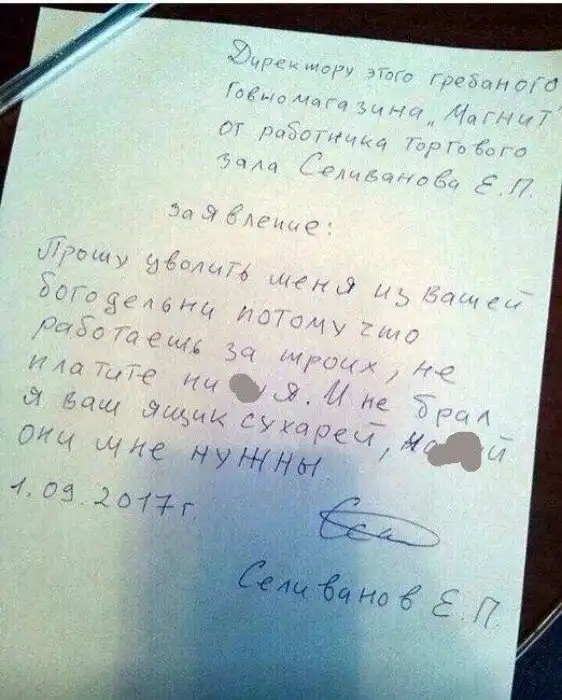 Директору этого гребаного
Говномагазина „Магнит"
от работника торгового
зала Селиванова Е.П.
заявление:
Прошу уволить меня из вашей
богодельни потому что
работаешь за троих, не
платите ни я. И не брал
я ваш ящик сухарей,
они мне нужны
1.09.2017г.
Селиванов Е.П.